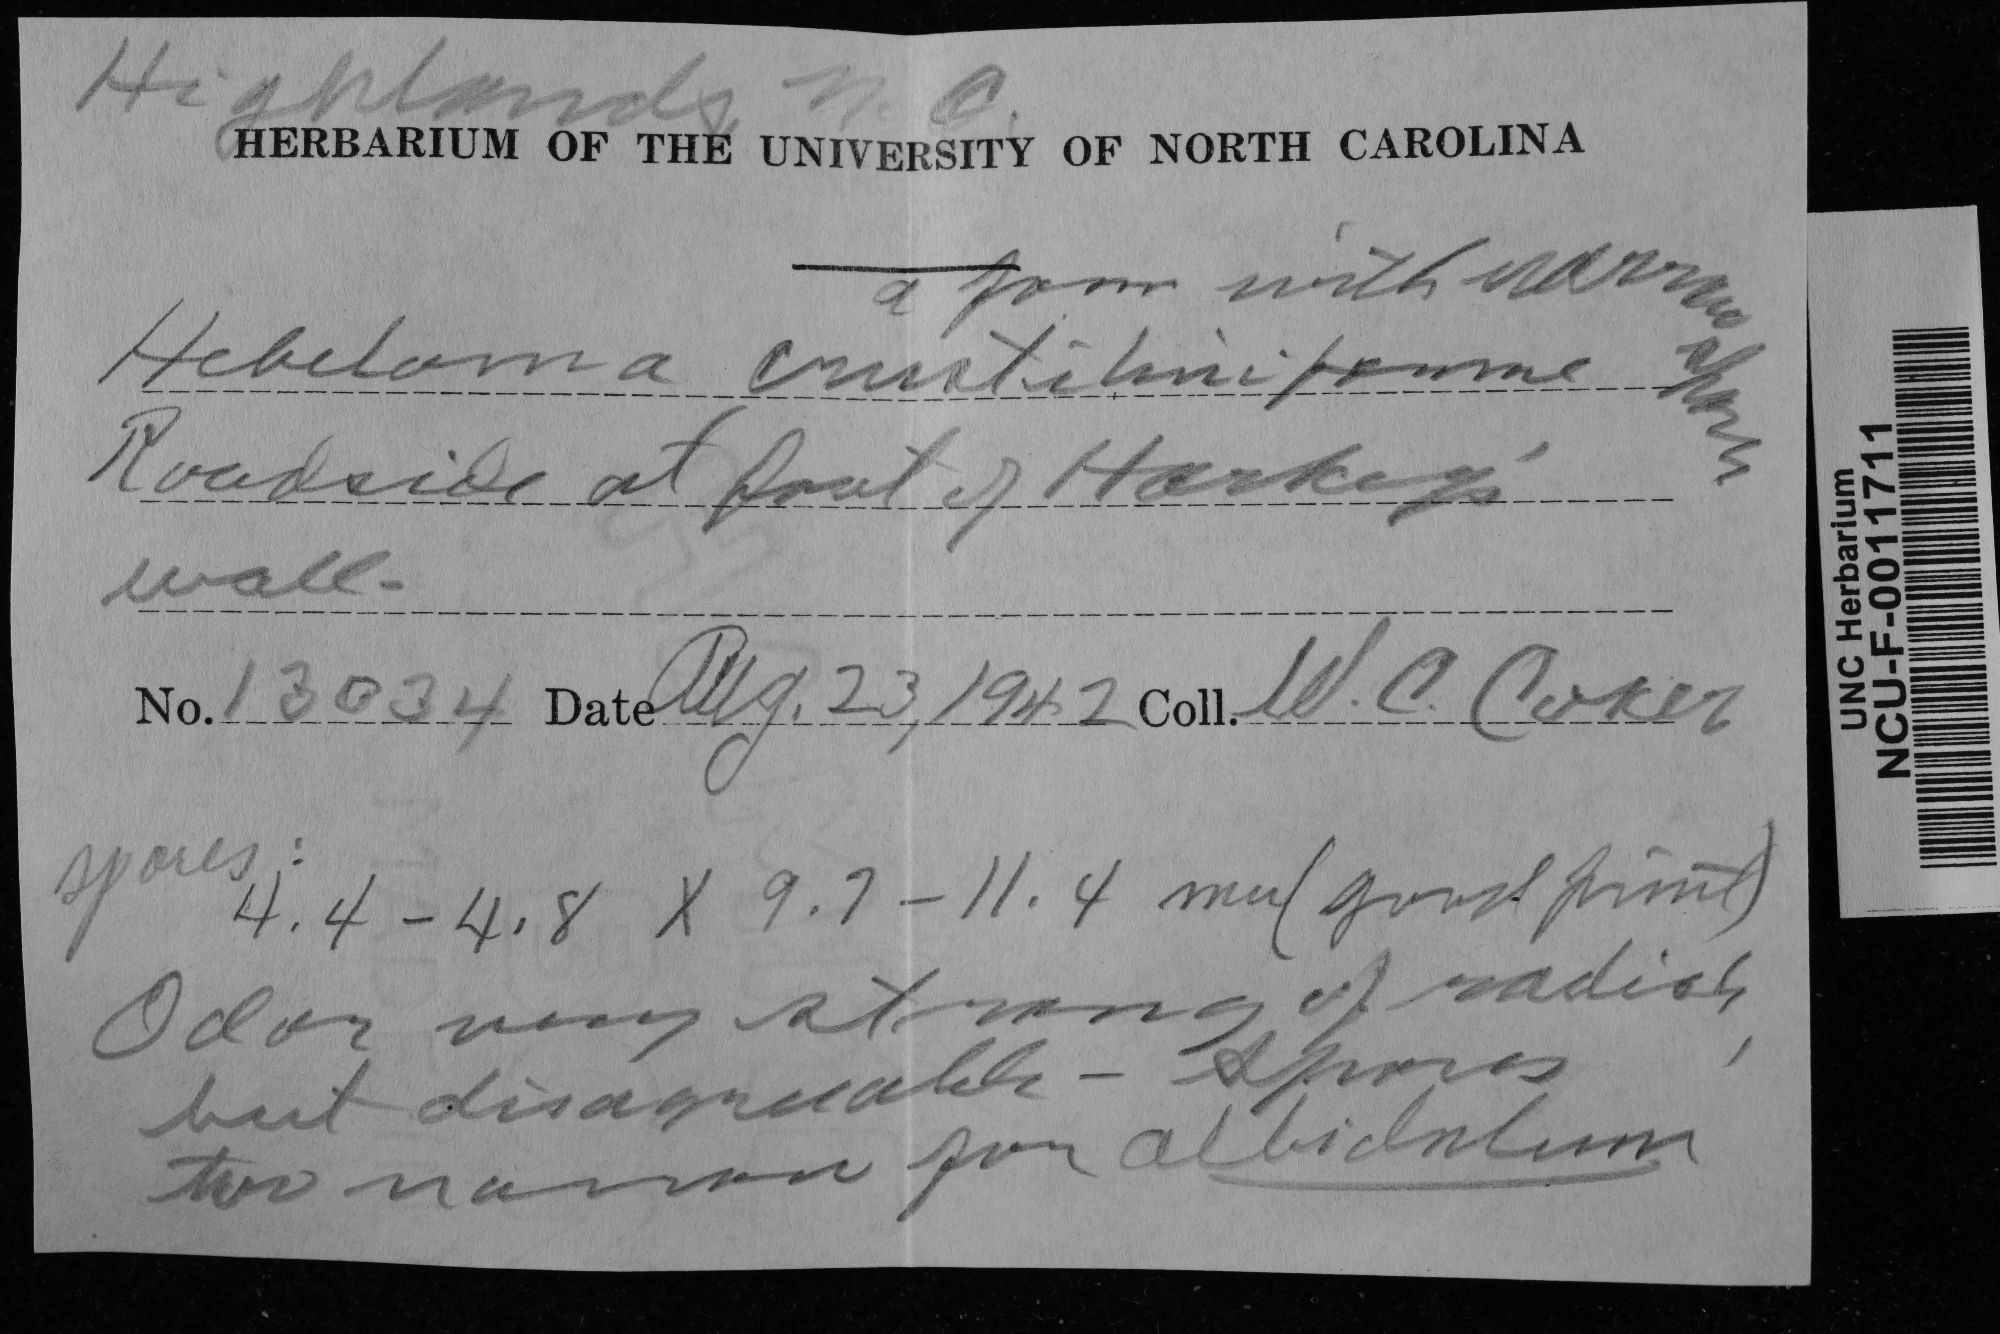 Highlands, N. C.
HERBARIUM OF THE UNIVERSITY OF NORTH CAROLINA
a form with narrow spores
Hebeloma crustiliniforme
Roadside at foot of Harkey's
wall-
No. 13034 Date Aug. 23, 1942 Coll. W. C. Coker
spores:
4.4-4.8 X 9.7-11.4 mu (good print)
Odor very strong of radish,
but disagreeable - Spores
too narrow for albidulum
UNC Herbarium
NCU-F-0011711